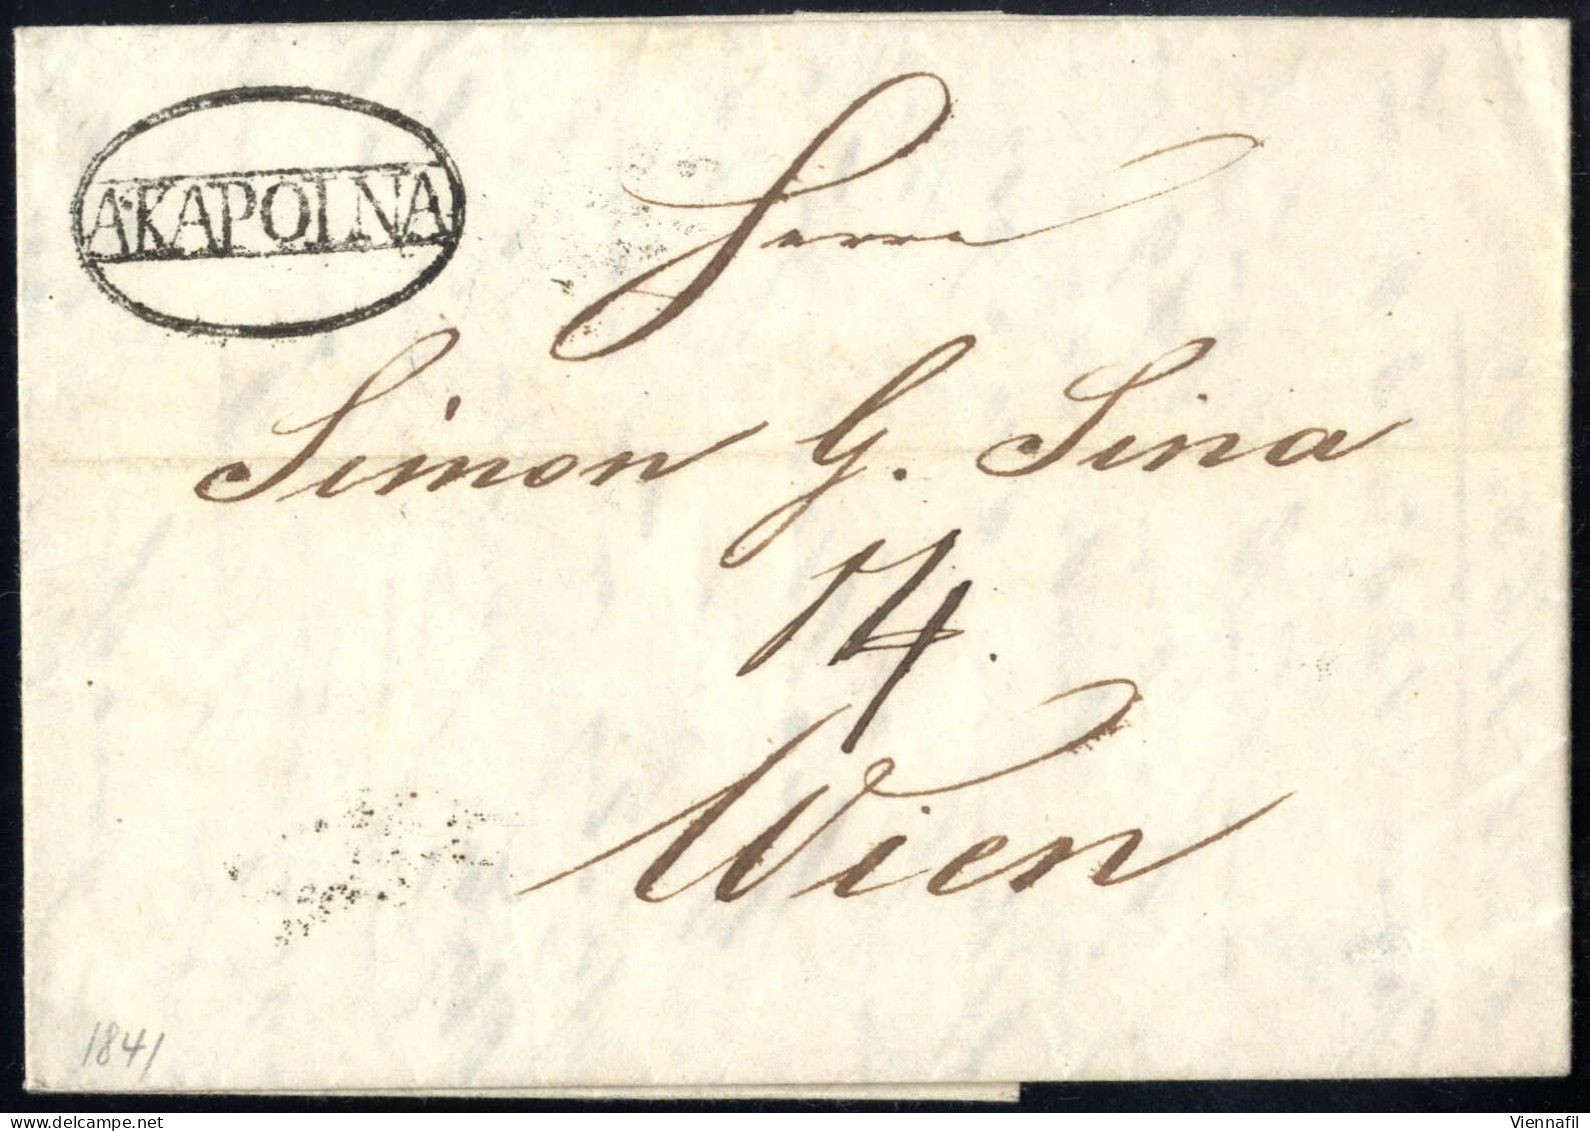 A·KAPOLNA
Herrn
Simon G. Sina
14.
Wien
1841
Viennafil